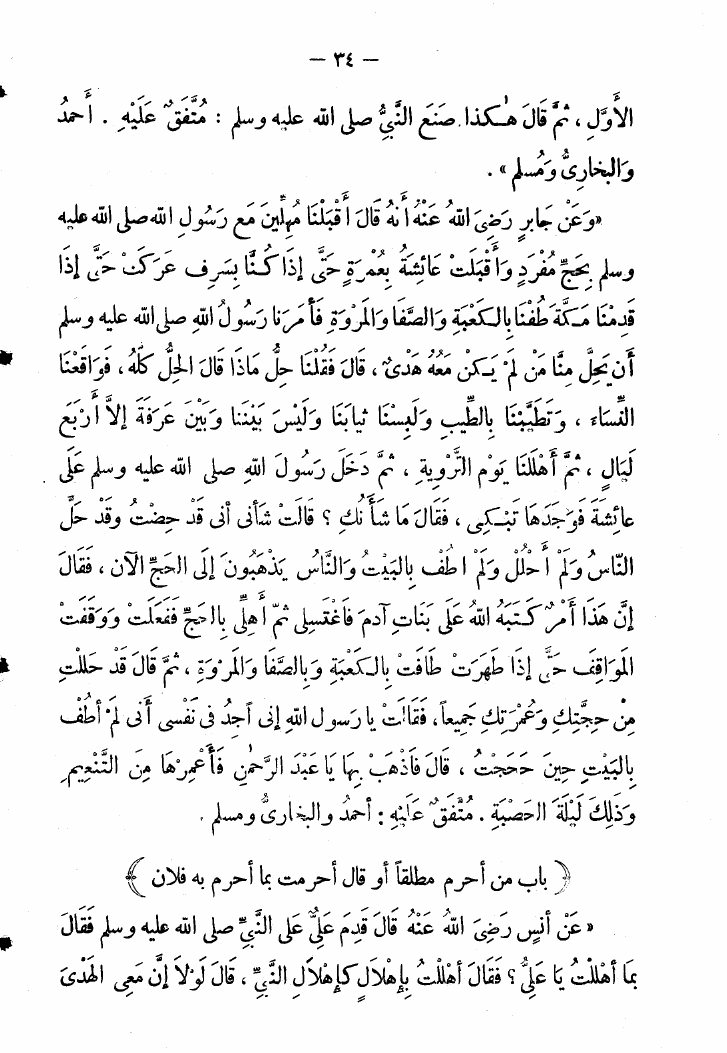 — ٣٤ —
الأَوَّلِ ، ثُمَّ قَالَ هٰكذا صَنَعَ النَّبِيُّ صلى الله عليه وسلم : مُتَّفَقٌ عَلَيْهِ . أَحمدُ
وَالبخارِىُّ وَمُسلم » .
«وَعَنْ جابرٍ رَضِىَ اللهُ عَنْهُ أَنهُ قَالَ أَقْبَلْنَا مُهِلِّينَ مَع رَسُولِ الله صلى الله عليه
وسلم بِحَجٍّ مُفْرَدٍ وَأَقْبَلَتْ عَائِشَةُ بِعُمْرَةٍ حَتَّى إِذَا كُنَّا بِسَرِف عَرَكَتْ حَتَّى إِذَا
قَدِمْنَا مَكَّةَ طُفْنَا بِالكَعْبَةِ وَالصَّفَا وَالمَرْوَةِ فَأَمَرَنا رَسُولُ اللهِ صلى الله عليه وسلم
أَن يَحِلَّ مِنَّا مَن لَمْ يَكنْ مَعَهُ هَدْىٌ ، قَالَ فَقُلْنَا حِلُّ مَاذَا قَالَ الحِلُّ كلّهُ ، فَوَاقَعْنَا
النِّسَاءَ ، وَتَطَيَّبْنَا بِالطِّيبِ وَلَبِسْنَا ثيابَنَا وَلَيْسَ بَيْنَنا وَبَيْنَ عَرَفَةَ إلاَّ أَرْبَعَ
لَيَالٍ ، ثُمَّ أَهْلَلْنَا يَوْم التَّرْوِيةِ ، ثُمَّ دَخَلَ رَسُولَ اللهِ صلى الله عليه وسلم عَلَى
عائِشَةَ فَوَجَدَهَا تَبْكِى ، فَقَالَ مَا شَأْنُكِ ؟ قَالَتْ شَأنى أنى قَدْ حِضْتُ وقَدْ حَلَّ
النَّاسُ وَلَمْ أَحْلُلْ وَلَمْ اطُف بِالبَيْتِ وَالنَّاسُ يَذْهَبُونَ إلَى الحَجِّ الآنَ ، فَقَالَ
إِنَّ هَذَا أَمْرٌ كَتَبَهُ اللهُ عَلَى بَنَاتِ آدمَ فَاغْتَسِلى ثُمَّ أَهِلِّى بِالحَجِّ فَفَعَلَتْ وَوَقَفَتْ
المَوَاقِفَ حَتَّى إِذَا طَهُرَتْ طَافَتْ بِالكَعْبَةِ وَبِالصَّفَا وَالمَرْوَةِ ، ثُمَّ قَالَ قَدْ حَلَلْتِ
مِنْ حِجَّتِكِ وَعُمْرَتِكِ جَمِيعاً ، فَقَالَتْ يا رَسول اللهِ إنى أَجِدُ فى نَفْسِى أَنى لَمْ أَطُفْ
بِالبَيْتِ حِينَ حَجَجْتُ ، قَالَ فَاذْهَبْ بِهَا يَا عَبْدَ الرَّحمٰنِ فَأَعْمِرْهَا مِنَ التَّنْعِيمِ
وَذَلِكَ لَيْلَةَ الحَصْبَةِ . مُتَّفَقٌ عَلَيْهِ : أَحمدُ والبخارىُّ ومسلم .
﴿ باب من أحرم مطلقاً أو قال أحرمت بما أحرم به فلان ﴾
«عَنْ أنسٍ رَضِىَ اللهُ عَنْهُ قَالَ قَدِمَ عَلِيٌّ عَلَى النَّبِيِّ صلى الله عليه وسلم فَقَالَ
بِمَا أَهْلَلْتُ يَا عَلِيُّ ؟ فَقَالَ أَهْلَلْتُ بِإِهْلاَلٍ كَإِهْلاَلِ النَّبِيِّ ، قَالَ لَوْلاَ إنَّ مَعِى الهَدْىَ